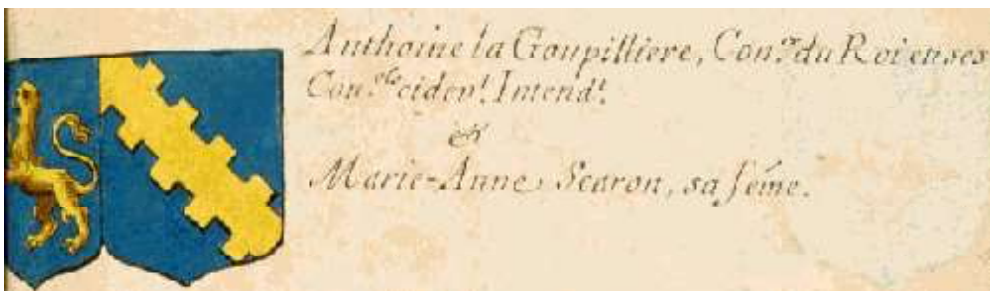 Anthoine la Goupilliere, Con.er du Roi en ses
Con.els cidev.t Intend.t
&
Marie-Anne Scaron, sa féme.